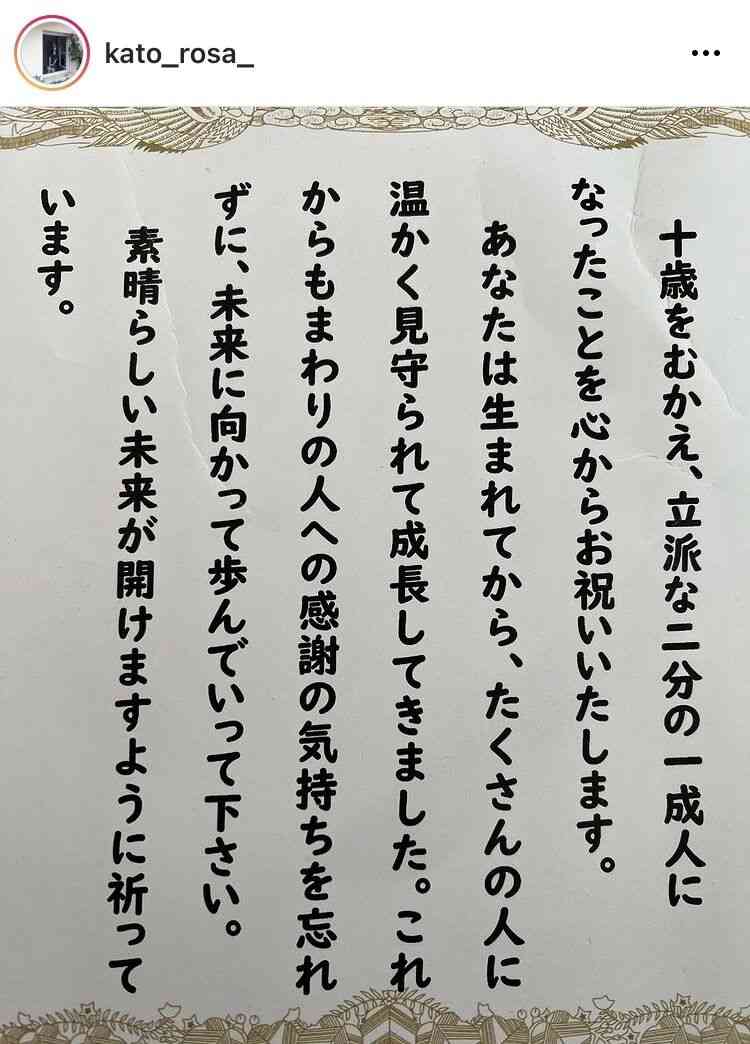 kato_rosa_
十歳をむかえ、立派な二分の一成人に
なったことを心からお祝いいたします。
あなたは生まれてから、たくさんの人に
温かく見守られて成長してきました。これ
からもまわりの人への感謝の気持ちを忘れ
ずに、未来に向かって歩んでいって下さい。
素晴らしい未来が開けますように祈って
います。